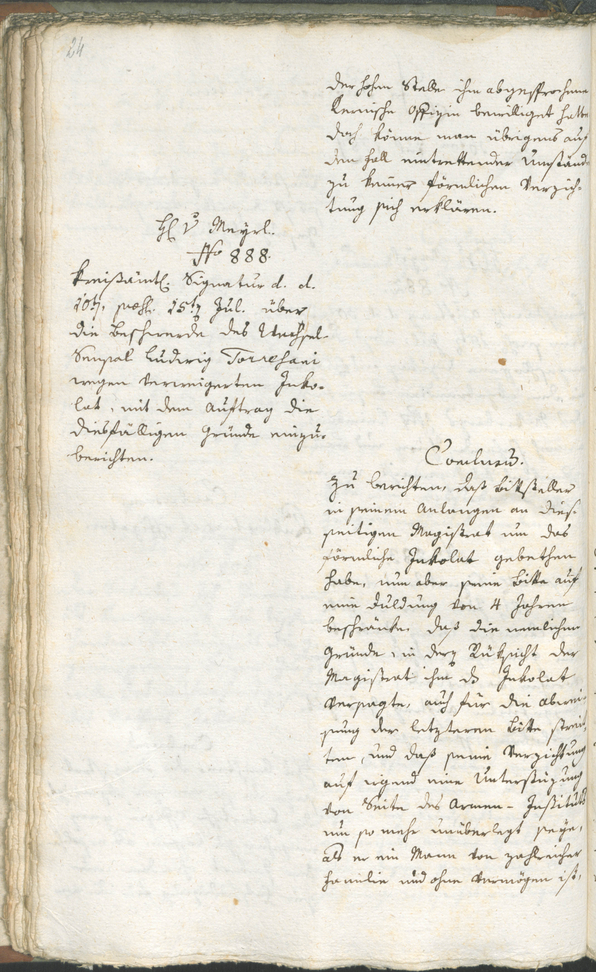 24
der hohen Stelle ihm abgesprochene
Lemische Offizin bewilliget hatte
doch könne man übrigens auf
den Fall eintrettender Umstände
zu keiner förmlichen Verzich-
tung sich erklären.
H v Meyrl.
No 888.
Kreisämtl. Signatur d. d.
20t, praes. 25t Jul. über
die Beschwerde des Wechsel-
Sensal Ludwig Torresani
wegen verweigerten Inko-
lat, mit dem Auftrag die
diesfälligen Gründe einzu-
berichten.
Conclusum.
Zu berichten, daß Bittsteller
in seinem Anlangen an dies-
seitigen Magistrat um das
förmliche Inkolat gebethen
habe, nun aber seine Bitte auf
eine Duldung von 4 Jahren
beschränke, daß die nemlichen
Gründe, in derer Rüksicht der
Magistrat ihm ds Inkolat
versagte, auch für die abwei-
sung der letzteren Bitte strei-
ten, und daß seine Verzichtung
auf irgend eine Unterstüzung
von Seite des Armen-Instituts
um so mehr unüberlegt seye,
als er ein Mann von zahlreicher
Familie und ohne Vermögen ist,